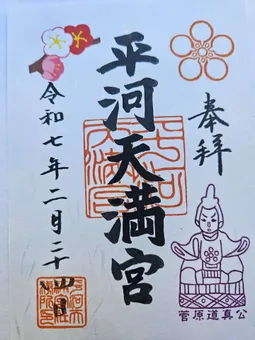 奉拝
平河天満宮
令和七年二月二十四日
菅原道真公